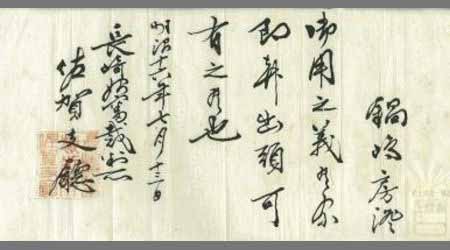 鍋島房澄
御用之義有之
即刻出頭可
有之者也
明治十六年七月十三日
長崎始審裁判所
佐賀支廳